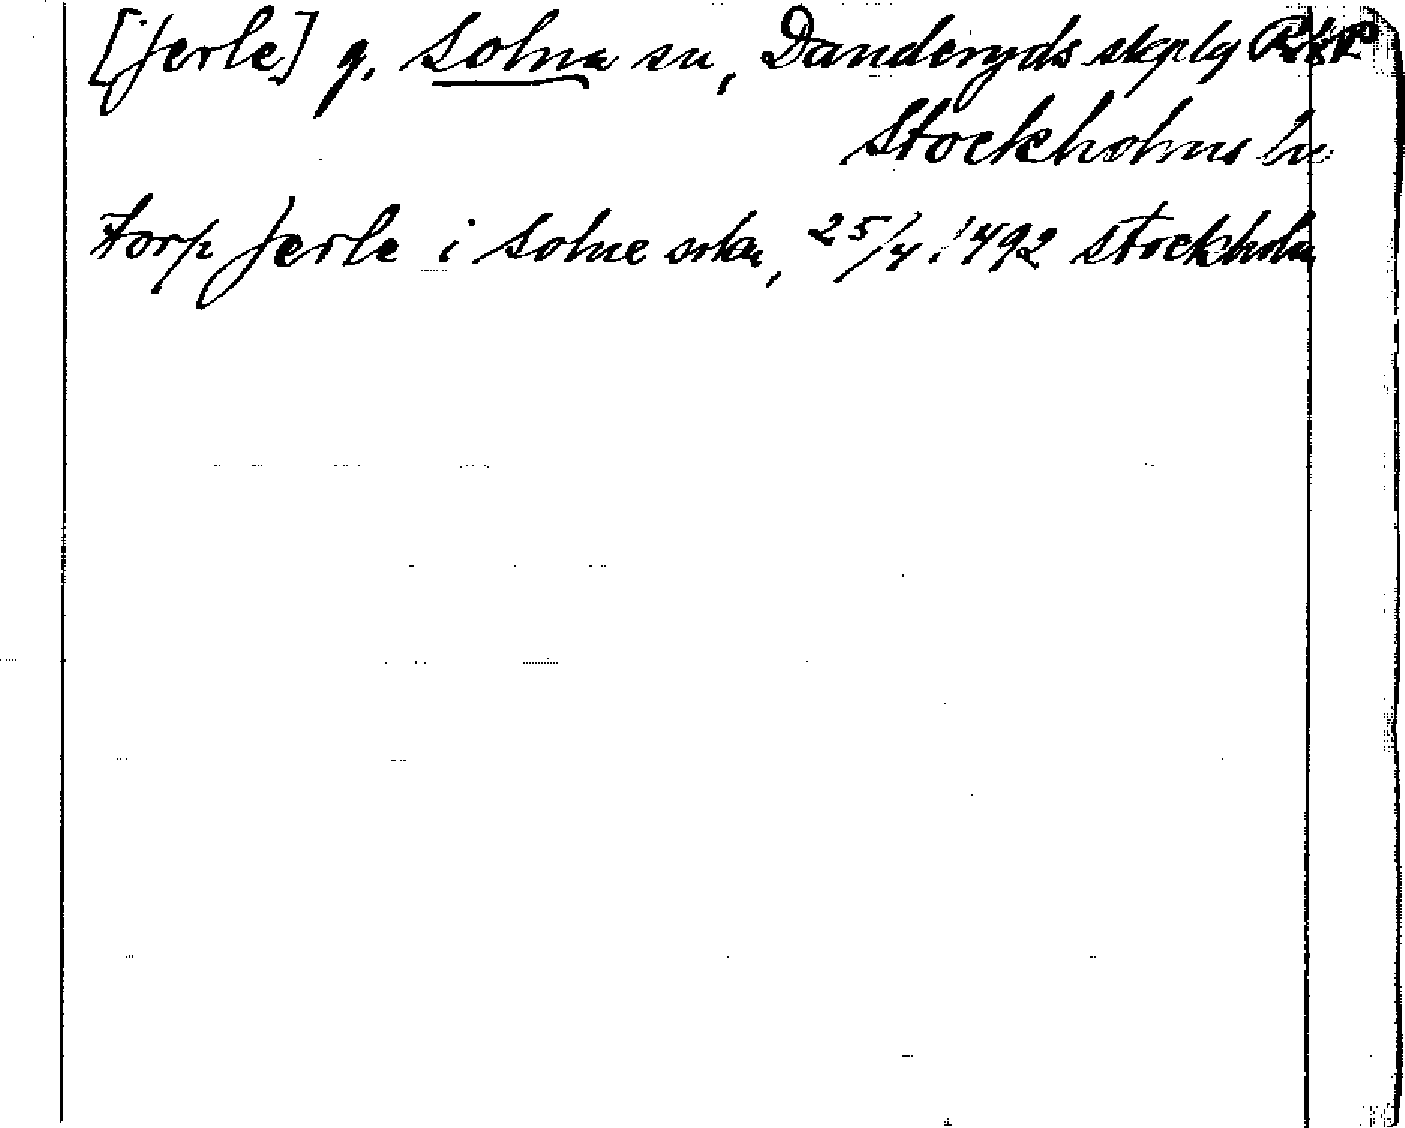 [Jerle] g. Solna sn, Danderyds skplg
Stockholms ln
torp Jerle i Solne sokn, 25/4 1492 Stockholm